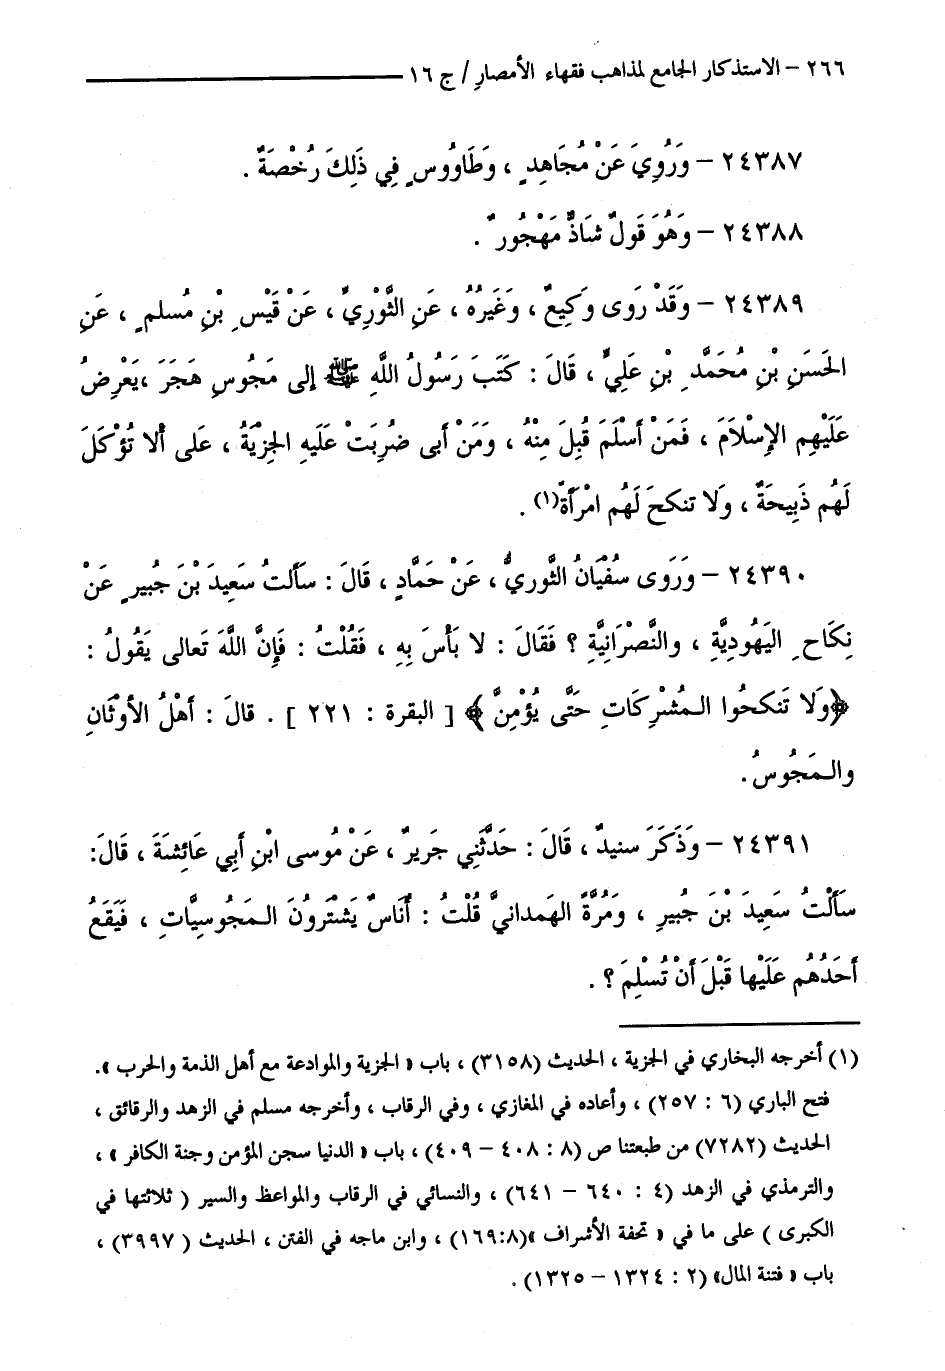 ٢٦٦ – الاستذكار الجامع لمذاهب فقهاء الأمصارِ / ج ١٦
٢٤٣٨٧ – وَرُوِيَ عَنْ مُجَاهِدٍ ، وَطَاوُوسٍ فِي ذَلِكَ رُخْصَةٌ .
٢٤٣٨٨ – وَهُوَ قَولٌ شَاذٌّ مَهْجُورٌ .
٢٤٣٨٩ – وَقَدْ رَوى وَكِيعٌ ، وَغَيرُهُ ، عَنِ الثَّوْرِيِّ ، عَنْ قَيْسِ بْنِ مُسلمٍ ، عَنِ
الحَسَنِ بْنِ مُحَمَّدِ بْنِ عَلِيٍّ ، قَالَ : كَتَبَ رَسُولُ اللَّهِ ﷺ إلى مَجُوسِ هَجَرَ ،يَعْرِضُ
عَلَيْهِم الإِسْلَامَ ، فَمَنْ أَسْلَمَ قُبِلَ مِنْهُ ، وَمَنْ أبى ضُرِبَتْ عَلَيهِ الجِزْيَةُ ، عَلى ألا تُؤْكَلَ
لَهُم ذَبِيحَةٌ ، وَلا تنكحَ لَهُم امْرَأَةٌ(١) .
٢٤٣٩٠ – وَرَوى سفْيَانُ الثَّوريُّ ، عَنْ حَمَّادٍ ، قَالَ : سَألتُ سَعِيدَ بْنَ جُبيرٍ عَنْ
نِكَاحِ اليَهُودِيَّةِ ، والنَّصْرَانِيَّةِ ؟ فَقَالَ : لا بَأْسَ بِهِ ، فَقُلْتُ : فَإِنَّ اللَّهَ تَعالى يَقُولُ :
﴿وَلَا تَنكحُوا الـمُشْرِكَاتِ حَتَّى يُؤْمِنَّ ﴾ [ البقرة : ٢٢١ ] . قالَ : أَهْلُ الأَوْثَانِ
والـمَجُوسُ.
٢٤٣٩١ – وَذَكَرَ سنيدٌ ، قَالَ : حَدَّثَنِي جَرِيرٌ ، عَنْ مُوسى ابْنِ أَبِي عَائِشَةَ ، قَالَ:
سَأَلْتُ سَعِيدَ بْنَ جُبِيرِ ، وَمُرَّةَ الهَمدانيَّ قُلْتُ : أُنَاسٌ يَشْتَرُونَ الـمَجُوسِيَّاتِ ، فَيَقَعُ
أَحَدُهُم عَلَيْها قَبْلَ أَنْ تُسْلِمَ ؟ .
(١) أخرجه البخاري في الجزية ، الحديث (٣١٥٨) ، باب « الجزية والموادعة مع أهل الذمة والحرب ».
فتح الباري (٦ : ٢٥٧) ، وأعاده في المغازي ، وفي الرقاب ، وأخرجه مسلم في الزهد والرقائق ،
الحديث (٧٢٨٢) من طبعتنا ص (٨ : ٤٠٨ – ٤٠٩) ، باب « الدنيا سجن المؤمن وجنة الكافر » ،
والترمذي في الزهد (٤ : ٦٤٠ – ٦٤١) ، والنسائي في الرقاب والمواعظ والسير ( ثلاثتها في
الكبرى ) على ما في « تحفة الأشراف »(١٦٩:٨) ، وابن ماجه في الفتن ، الحديث ( ٣٩٩٧) ،
باب « فتنة المال» (٢ : ١٣٢٤ – ١٣٢٥) .